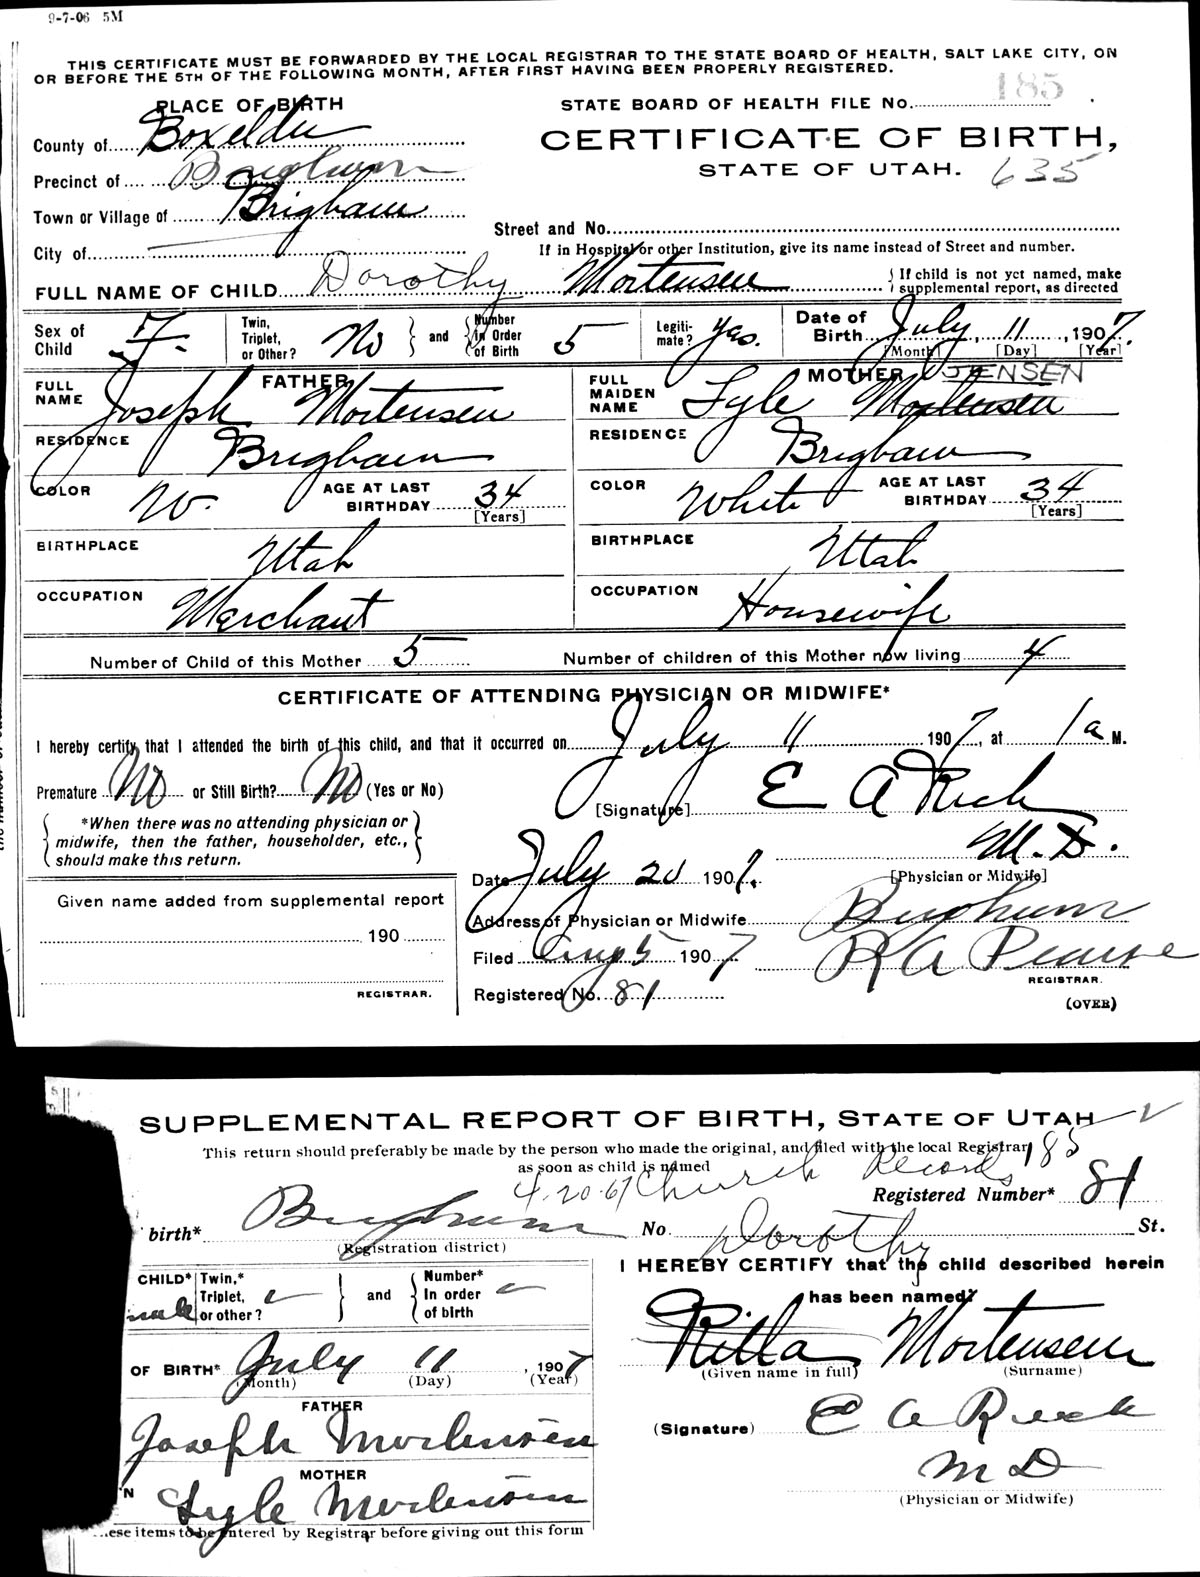 9-7-06 5M
THIS CERTIFICATE MUST BE FORWARDED BY THE LOCAL REGISTRAR TO THE STATE BOARD OF HEALTH, SALT LAKE CITY, ON
OR BEFORE THE 5TH OF THE FOLLOWING MONTH, AFTER FIRST HAVING BEEN PROPERLY REGISTERED.
PLACE OF BIRTH
County of Boxelder
Precinct of Brigham
Town or Village of Brigham
City of
STATE BOARD OF HEALTH FILE No. 185
CERTIFICATE OF BIRTH,
STATE OF UTAH. 635
Street and No.
If in Hospital or other Institution, give its name instead of Street and number.
FULL NAME OF CHILD Dorothy Mortensen
If child is not yet named, make
supplemental report, as directed
Sex of Child F.
Twin, Triplet, or Other? No and Number in Order of Birth 5
Legitimate? Yes.
Date of Birth July 11, 1907.
[Month] [Day] [Year]
FATHER
FULL NAME Joseph Mortensen
RESIDENCE Brigham
COLOR W. AGE AT LAST BIRTHDAY 34
[Years]
BIRTHPLACE Utah
OCCUPATION Merchant
MOTHER JENSEN
FULL MAIDEN NAME Lyle Mortensen
RESIDENCE Brigham
COLOR White AGE AT LAST BIRTHDAY 34
[Years]
BIRTHPLACE Utah
OCCUPATION Housewife
Number of Child of this Mother 5 Number of children of this Mother now living 4
CERTIFICATE OF ATTENDING PHYSICIAN OR MIDWIFE*
I hereby certify that I attended the birth of this child, and that it occurred on July 11 1907, at 1 a M.
Premature No or Still Birth? No (Yes or No)
*When there was no attending physician or
midwife, then the father, householder, etc.,
should make this return.
[Signature] E A Rich
M.D.
[Physician or Midwife]
Date July 20 1907.
Address of Physician or Midwife Brigham
Filed Aug 5 1907 R A Pearse
REGISTRAR.
Registered No. 81
(OVER)
Given name added from supplemental report
190
REGISTRAR.
SUPPLEMENTAL REPORT OF BIRTH, STATE OF UTAH
This return should preferably be made by the person who made the original, and filed with the local Registrar
as soon as child is named
185
4-20-67 Church Records
Registered Number* 81
birth* Brigham
(Registration district)
No. St.
Dorothy
CHILD* Twin,* Triplet, or other? and Number* In order of birth
I HEREBY CERTIFY that the child described herein
has been named:
Rilla Mortensen
(Given name in full) (Surname)
OF BIRTH* July 11, 1907
(Month) (Day) (Year)
FATHER
Joseph Mortensen
MOTHER
N Lyle Mortensen
(Signature) E A Rich
M D
(Physician or Midwife)
ese items to be entered by Registrar before giving out this form